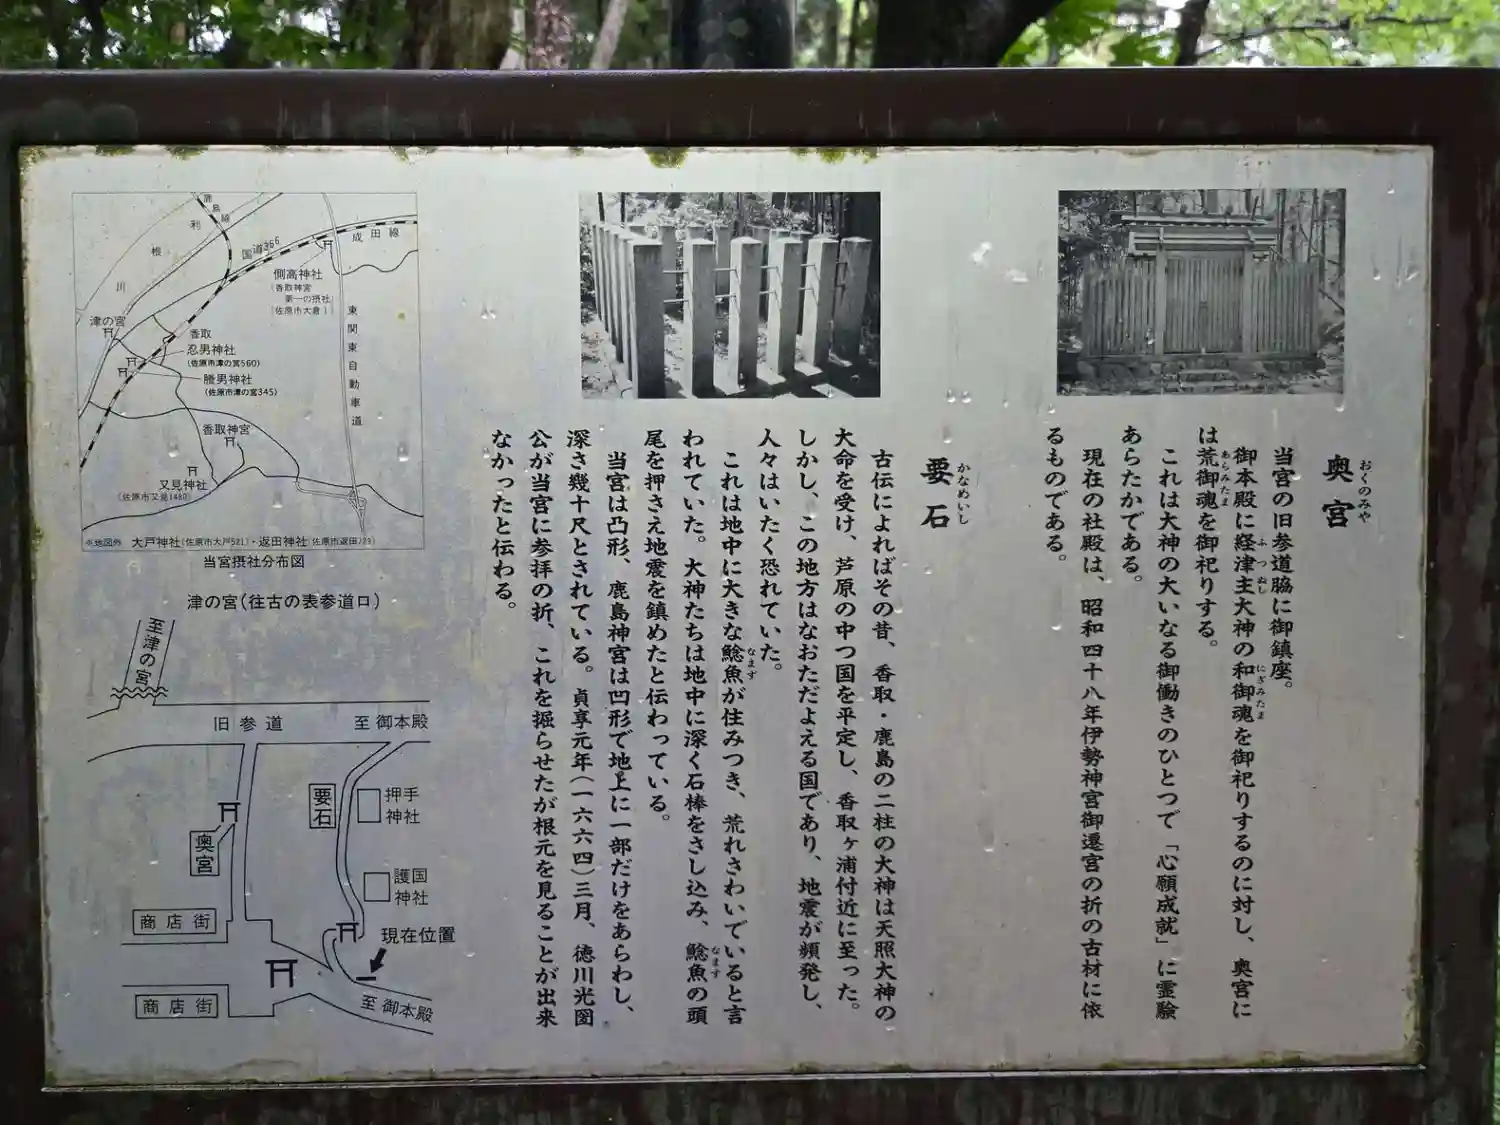 奥宮
おくのみや
当宮の旧参道脇に御鎮座。
御本殿に経津主大神の和御魂を御祀りするのに対し、奥宮に
ふつぬし
にぎみたま
は荒御魂を御祀りする。
あらみたま
これは大神の大いなる御働きのひとつで「心願成就」に霊験
あらたかである。
現在の社殿は、昭和四十八年伊勢神宮御遷宮の折の古材に依
るものである。
要石
かなめいし
古伝によればその昔、香取・鹿島の二柱の大神は天照大神の
大命を受け、芦原の中つ国を平定し、香取ヶ浦付近に至った。
しかし、この地方はなおただよえる国であり、地震が頻発し、
人々はいたく恐れていた。
これは地中に大きな鯰魚が住みつき、荒れさわいでいると言
なまず
われていた。大神たちは地中に深く石棒をさし込み、鯰魚の頭
なまず
尾を押さえ地震を鎮めたと伝わっている。
当宮は凸形、鹿島神宮は凹形で地上に一部だけをあらわし、
深さ幾十尺とされている。貞享元年(一六六四)三月、徳川光圀
公が当宮に参拝の折、これを掘らせたが根元を見ることが出来
なかったと伝わる。
鹿島線
利根川
国道356
成田線
側高神社
(香取神宮
第一の摂社)
(佐原市大倉1)
東関東自動車道
津の宮
香取
忍男神社
(佐原市津の宮560)
膽男神社
(佐原市津の宮345)
香取神宮
又見神社
(佐原市又見1480)
※地図外 大戸神社(佐原市大戸521)・返田神社(佐原市返田773)
当宮摂社分布図
津の宮(往古の表参道口)
至津の宮
旧参道
至御本殿
要石
押手
神社
奥宮
護国
神社
商店街
現在位置
商店街
至御本殿